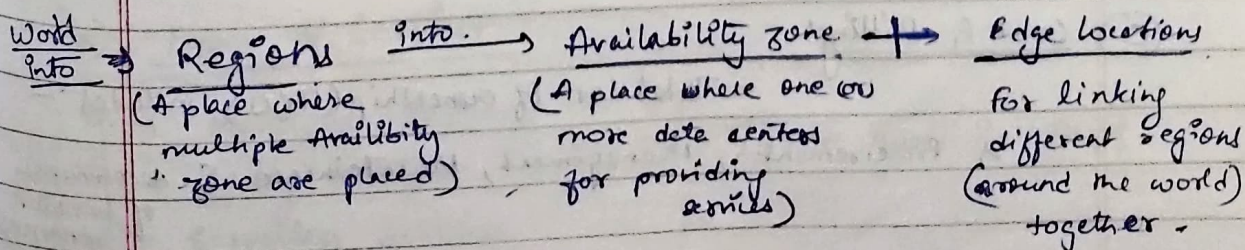 World into → Regions into. → Availability zone + → Edge locations
(A place where multiple Availibity zone are placed)
(A place where one or more data centers for providing services)
for linking different regions (around the world) together.